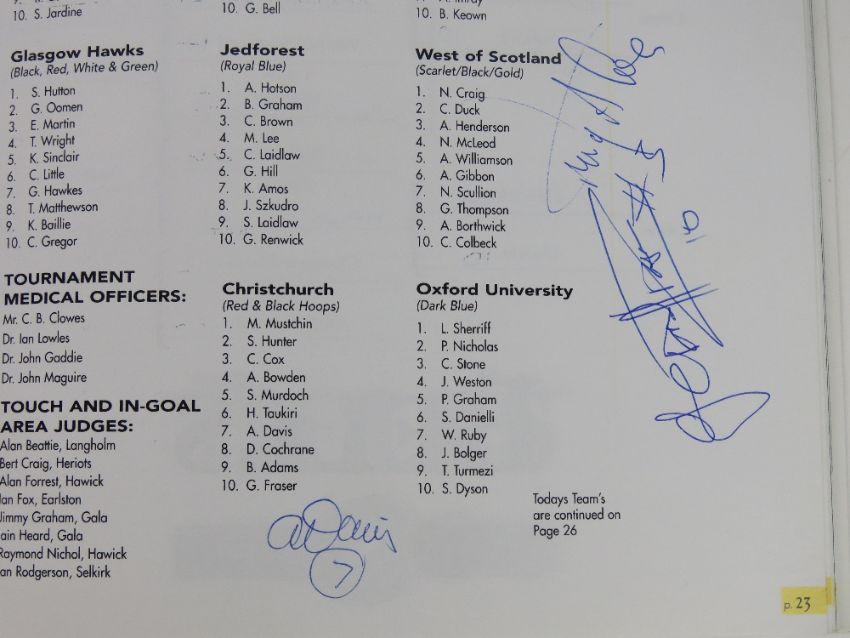 10. S. Jardine
10. G. Bell
10. B. Keown
Glasgow Hawks
(Black, Red, White & Green)
1. S. Hutton
2. G. Oomen
3. E. Martin
4. T. Wright
5. K. Sinclair
6. C. Little
7. G. Hawkes
8. T. Matthewson
9. K. Baillie
10. C. Gregor
Jedforest
(Royal Blue)
1. A. Hotson
2. B. Graham
3. C. Brown
4. M. Lee
5. C. Laidlaw
6. G. Hill
7. K. Amos
8. J. Szkudro
9. S. Laidlaw
10. G. Renwick
West of Scotland
(Scarlet/Black/Gold)
1. N. Craig
2. C. Duck
3. A. Henderson
4. N. McLeod
5. A. Williamson
6. A. Gibbon
7. N. Scullion
8. G. Thompson
9. A. Borthwick
10. C. Colbeck
TOURNAMENT
MEDICAL OFFICERS:
Mr. C. B. Clowes
Dr. Ian Lowles
Dr. John Gaddie
Dr. John Maguire
TOUCH AND IN-GOAL
AREA JUDGES:
Alan Beattie, Langholm
Bert Craig, Heriots
Alan Forrest, Hawick
Ian Fox, Earlston
Jimmy Graham, Gala
Iain Heard, Gala
Raymond Nichol, Hawick
Ian Rodgerson, Selkirk
Christchurch
(Red & Black Hoops)
1. M. Mustchin
2. S. Hunter
3. C. Cox
4. A. Bowden
5. S. Murdoch
6. H. Taukiri
7. A. Davis
8. D. Cochrane
9. B. Adams
10. G. Fraser
A Davis
7
Oxford University
(Dark Blue)
1. L. Sherriff
2. P. Nicholas
3. C. Stone
4. J. Weston
5. P. Graham
6. S. Danielli
7. W. Ruby
8. J. Bolger
9. T. Turmezi
10. S. Dyson
Todays Team's
are continued on
Page 26
p. 23